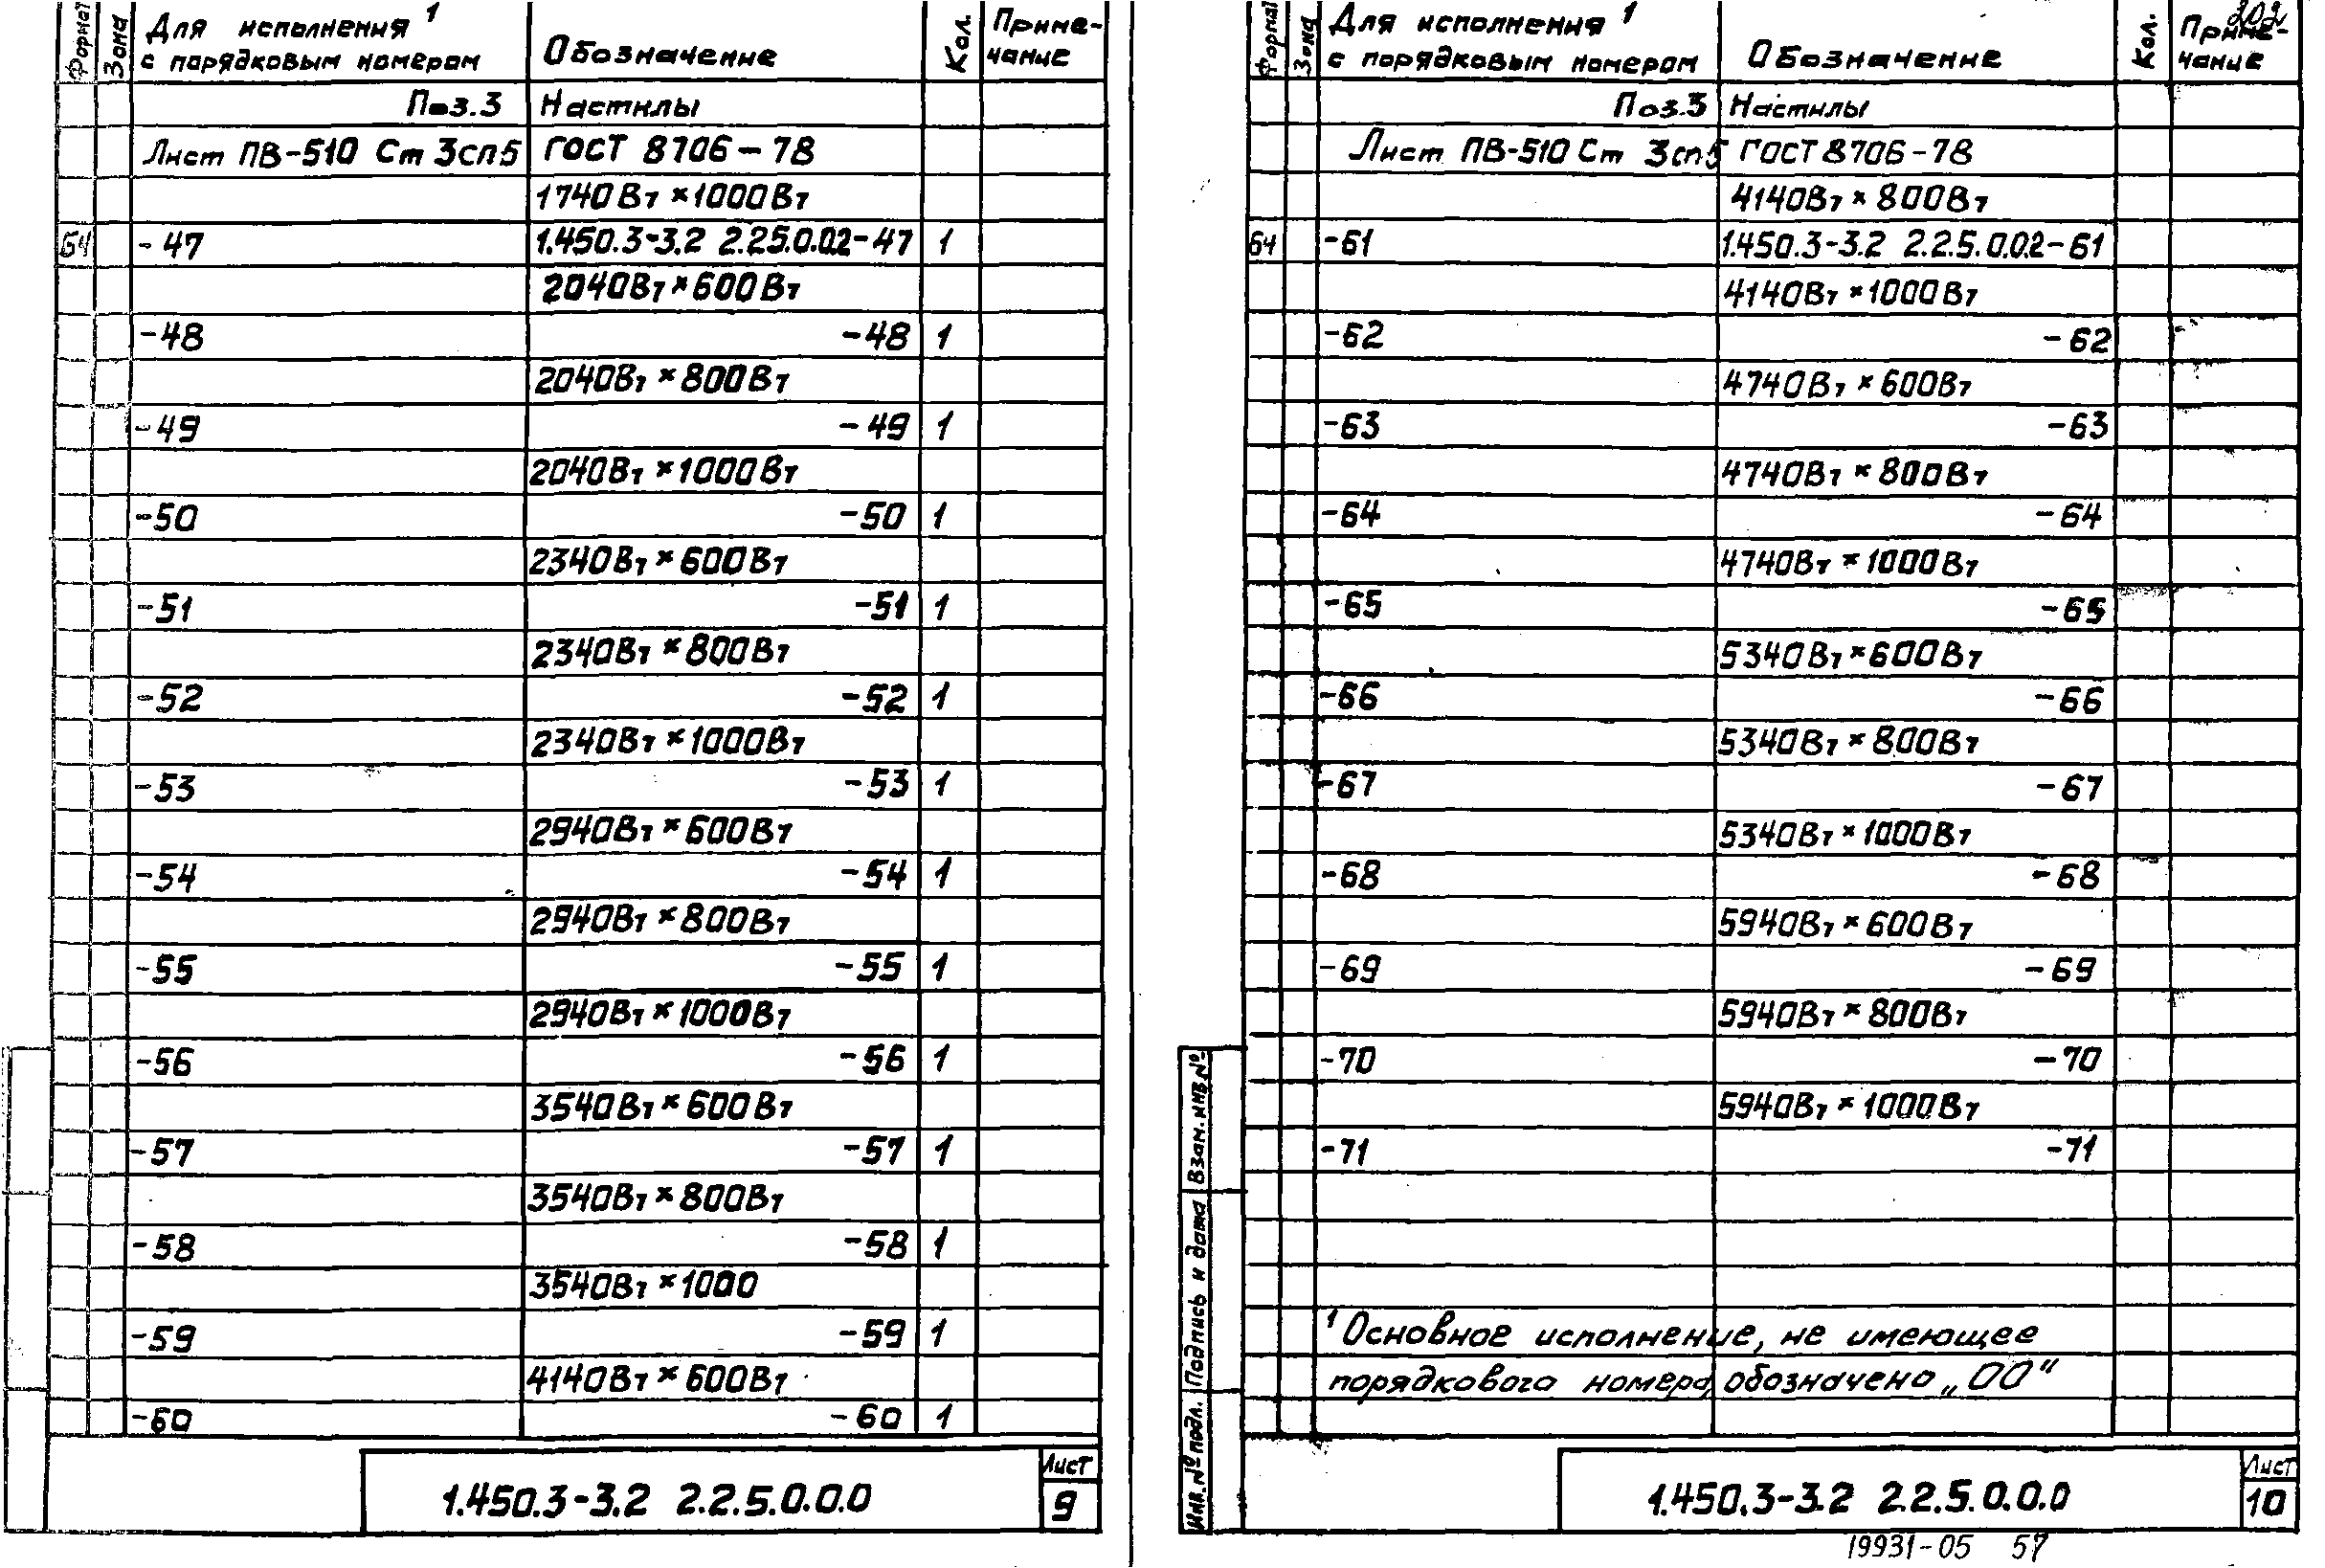 Формат Зона Для исполнения 1 с порядковым номером Обозначение Кол. Приме-чание
Поз.3 Настилы
Лист ПВ-510 Ст 3сп5 ГОСТ 8706-78
1740Вт×1000Вт
Б4 -47 1.450.3-3.2 2.2.5.0.0.2-47 1
2040Вт×600Вт
-48 -48 1
2040Вт×800Вт
-49 -49 1
2040Вт×1000Вт
-50 -50 1
2340Вт×600Вт
-51 -51 1
2340Вт×800Вт
-52 -52 1
2340Вт×1000Вт
-53 -53 1
2940Вт×600Вт
-54 -54 1
2940Вт×800Вт
-55 -55 1
2940Вт×1000Вт
-56 -56 1
3540Вт×600Вт
-57 -57 1
3540Вт×800Вт
-58 -58 1
3540Вт×1000
-59 -59 1
4140Вт×600Вт
-60 -60 1
1.450.3-3.2 2.2.5.0.0.0
Лист
9
202
Формат Зона Для исполнения 1 с порядковым номером Обозначение Кол. Приме-чание
Поз.3 Настилы
Лист ПВ-510 Ст 3сп5 ГОСТ 8706-78
4140Вт×800Вт
Б4 -61 1.450.3-3.2 2.2.5.0.0.2-61
4140Вт×1000Вт
-62 -62
4740Вт×600Вт
-63 -63
4740Вт×800Вт
-64 -64
4740Вт×1000Вт
-65 -65
5340Вт×600Вт
-66 -66
5340Вт×800Вт
-67 -67
5340Вт×1000Вт
-68 -68
5940Вт×600Вт
-69 -69
5940Вт×800Вт
-70 -70
5940Вт×1000Вт
-71 -71
1 Основное исполнение, не имеющее
порядкового номера, обозначено „00“
Инв.№ подл. Подпись и дата Взам.инв.№
1.450.3-3.2 2.2.5.0.0.0
Лист
10
19931-05 57